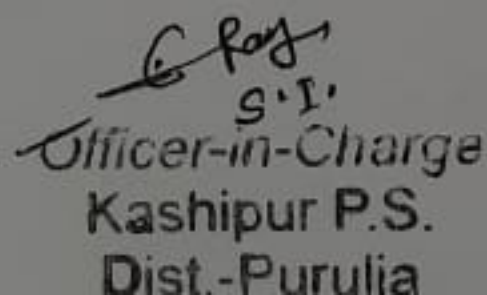 C Roy
S.I.
Officer-in-Charge
Kashipur P.S.
Dist.-Purulia